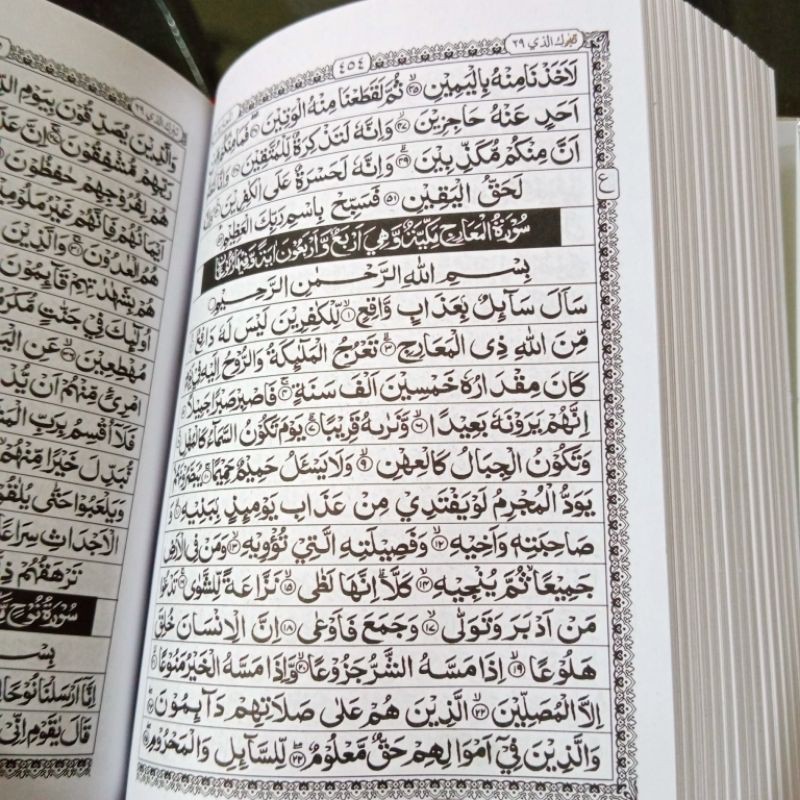 تبٰرك الذي ٢٩
٤٥٤
لَاَخَذْنَا مِنْهُ بِالْيَمِيْنِ ۙ٤٥ ثُمَّ لَقَطَعْنَا مِنْهُ الْوَتِيْنَ ۖ٤٦ فَمَا مِنْكُمْ مِّنْ
اَحَدٍ عَنْهُ حَاجِزِيْنَ ۙ٤٧ وَاِنَّهٗ لَتَذْكِرَةٌ لِّلْمُتَّقِيْنَ ٤٨ وَاِنَّا لَنَعْلَمُ
اَنَّ مِنْكُمْ مُّكَذِّبِيْنَ ۙ٤٩ وَاِنَّهٗ لَحَسْرَةٌ عَلَى الْكٰفِرِيْنَ ۙ٥٠ وَاِنَّهٗ
لَحَقُّ الْيَقِيْنِ ٥١ فَسَبِّحْ بِاسْمِ رَبِّكَ الْعَظِيْمِ ٥٢
ع
سُوْرَةُ الْمَعَارِجِ مَكِّيَّةٌ وَّهِيَ اَرْبَعٌ وَّاَرْبَعُوْنَ اٰيَةً وَّفِيْهَا رُكُوْعَانِ
بِسْمِ اللهِ الرَّحْمٰنِ الرَّحِيْمِ
سَاَلَ سَآئِلٌ بِعَذَابٍ وَّاقِعٍ ۙ١ لِّلْكٰفِرِيْنَ لَيْسَ لَهٗ دَافِعٌ ۙ٢
مِّنَ اللهِ ذِى الْمَعَارِجِ ٣ تَعْرُجُ الْمَلٰٓئِكَةُ وَالرُّوْحُ اِلَيْهِ فِيْ يَوْمٍ
كَانَ مِقْدَارُهٗ خَمْسِيْنَ اَلْفَ سَنَةٍ ٤ فَاصْبِرْ صَبْرًا جَمِيْلًا ٥
اِنَّهُمْ يَرَوْنَهٗ بَعِيْدًا ۙ٦ وَّنَرٰىهُ قَرِيْبًا ٧ يَوْمَ تَكُوْنُ السَّمَآءُ كَالْمُهْلِ ۙ٨
وَتَكُوْنُ الْجِبَالُ كَالْعِهْنِ ۙ٩ وَلَا يَسْـَٔلُ حَمِيْمٌ حَمِيْمًا ١٠ يُّبَصَّرُوْنَهُمْ
يَوَدُّ الْمُجْرِمُ لَوْ يَفْتَدِيْ مِنْ عَذَابِ يَوْمِئِذٍ بِبَنِيْهِ ۙ١١ وَ
صَاحِبَتِهٖ وَاَخِيْهِ ۙ١٢ وَفَصِيْلَتِهِ الَّتِيْ تُؤْوِيْهِ ۙ١٣ وَمَنْ فِى الْاَرْضِ
جَمِيْعًا ثُمَّ يُنْجِيْهِ ۙ١٤ كَلَّا اِنَّهَا لَظٰى ۙ١٥ نَزَّاعَةً لِّلشَّوٰى ١٦ تَدْعُوْا
مَنْ اَدْبَرَ وَتَوَلّٰى ۙ١٧ وَجَمَعَ فَاَوْعٰى ١٨ اِنَّ الْاِنْسَانَ خُلِقَ
هَلُوْعًا ۙ١٩ اِذَا مَسَّهُ الشَّرُّ جَزُوْعًا ۙ٢٠ وَّاِذَا مَسَّهُ الْخَيْرُ مَنُوْعًا ۙ٢١
اِلَّا الْمُصَلِّيْنَ ۙ٢٢ الَّذِيْنَ هُمْ عَلٰى صَلَاتِهِمْ دَآئِمُوْنَ ٢٣
وَالَّذِيْنَ فِيْٓ اَمْوَالِهِمْ حَقٌّ مَّعْلُوْمٌ ۙ٢٤ لِّلسَّآئِلِ وَالْمَحْرُوْمِ ٢٥
تبٰرك الذي ٢٩
وَالَّذِيْنَ يُصَدِّقُوْنَ بِيَوْمِ
رَبِّهِمْ مُّشْفِقُوْنَ ٢٧ اِنَّ
هُمْ لِفُرُوْجِهِمْ حٰفِظُوْنَ
اَيْمَانُهُمْ فَاِنَّهُمْ غَيْرُ مَلُوْمِيْنَ
هُمُ الْعٰدُوْنَ ٣١ وَالَّذِيْنَ
هُمْ بِشَهٰدٰتِهِمْ قَآئِمُوْنَ
اُولٰٓئِكَ فِيْ جَنّٰتٍ
مُهْطِعِيْنَ ٣٦ عَنِ
امْرِئٍ مِّنْهُمْ اَنْ
فَلَآ اُقْسِمُ بِرَبِّ
نُّبَدِّلَ خَيْرًا مِّنْهُمْ
وَيَلْعَبُوْا حَتّٰى
الْاَجْدَاثِ سِرَاعًا
تَرْهَقُهُمْ
سُوْرَةُ نُوْحٍ
بِسْمِ
اِنَّآ اَرْسَلْنَا نُوْحًا
قَالَ يٰقَوْمِ اِنِّيْ